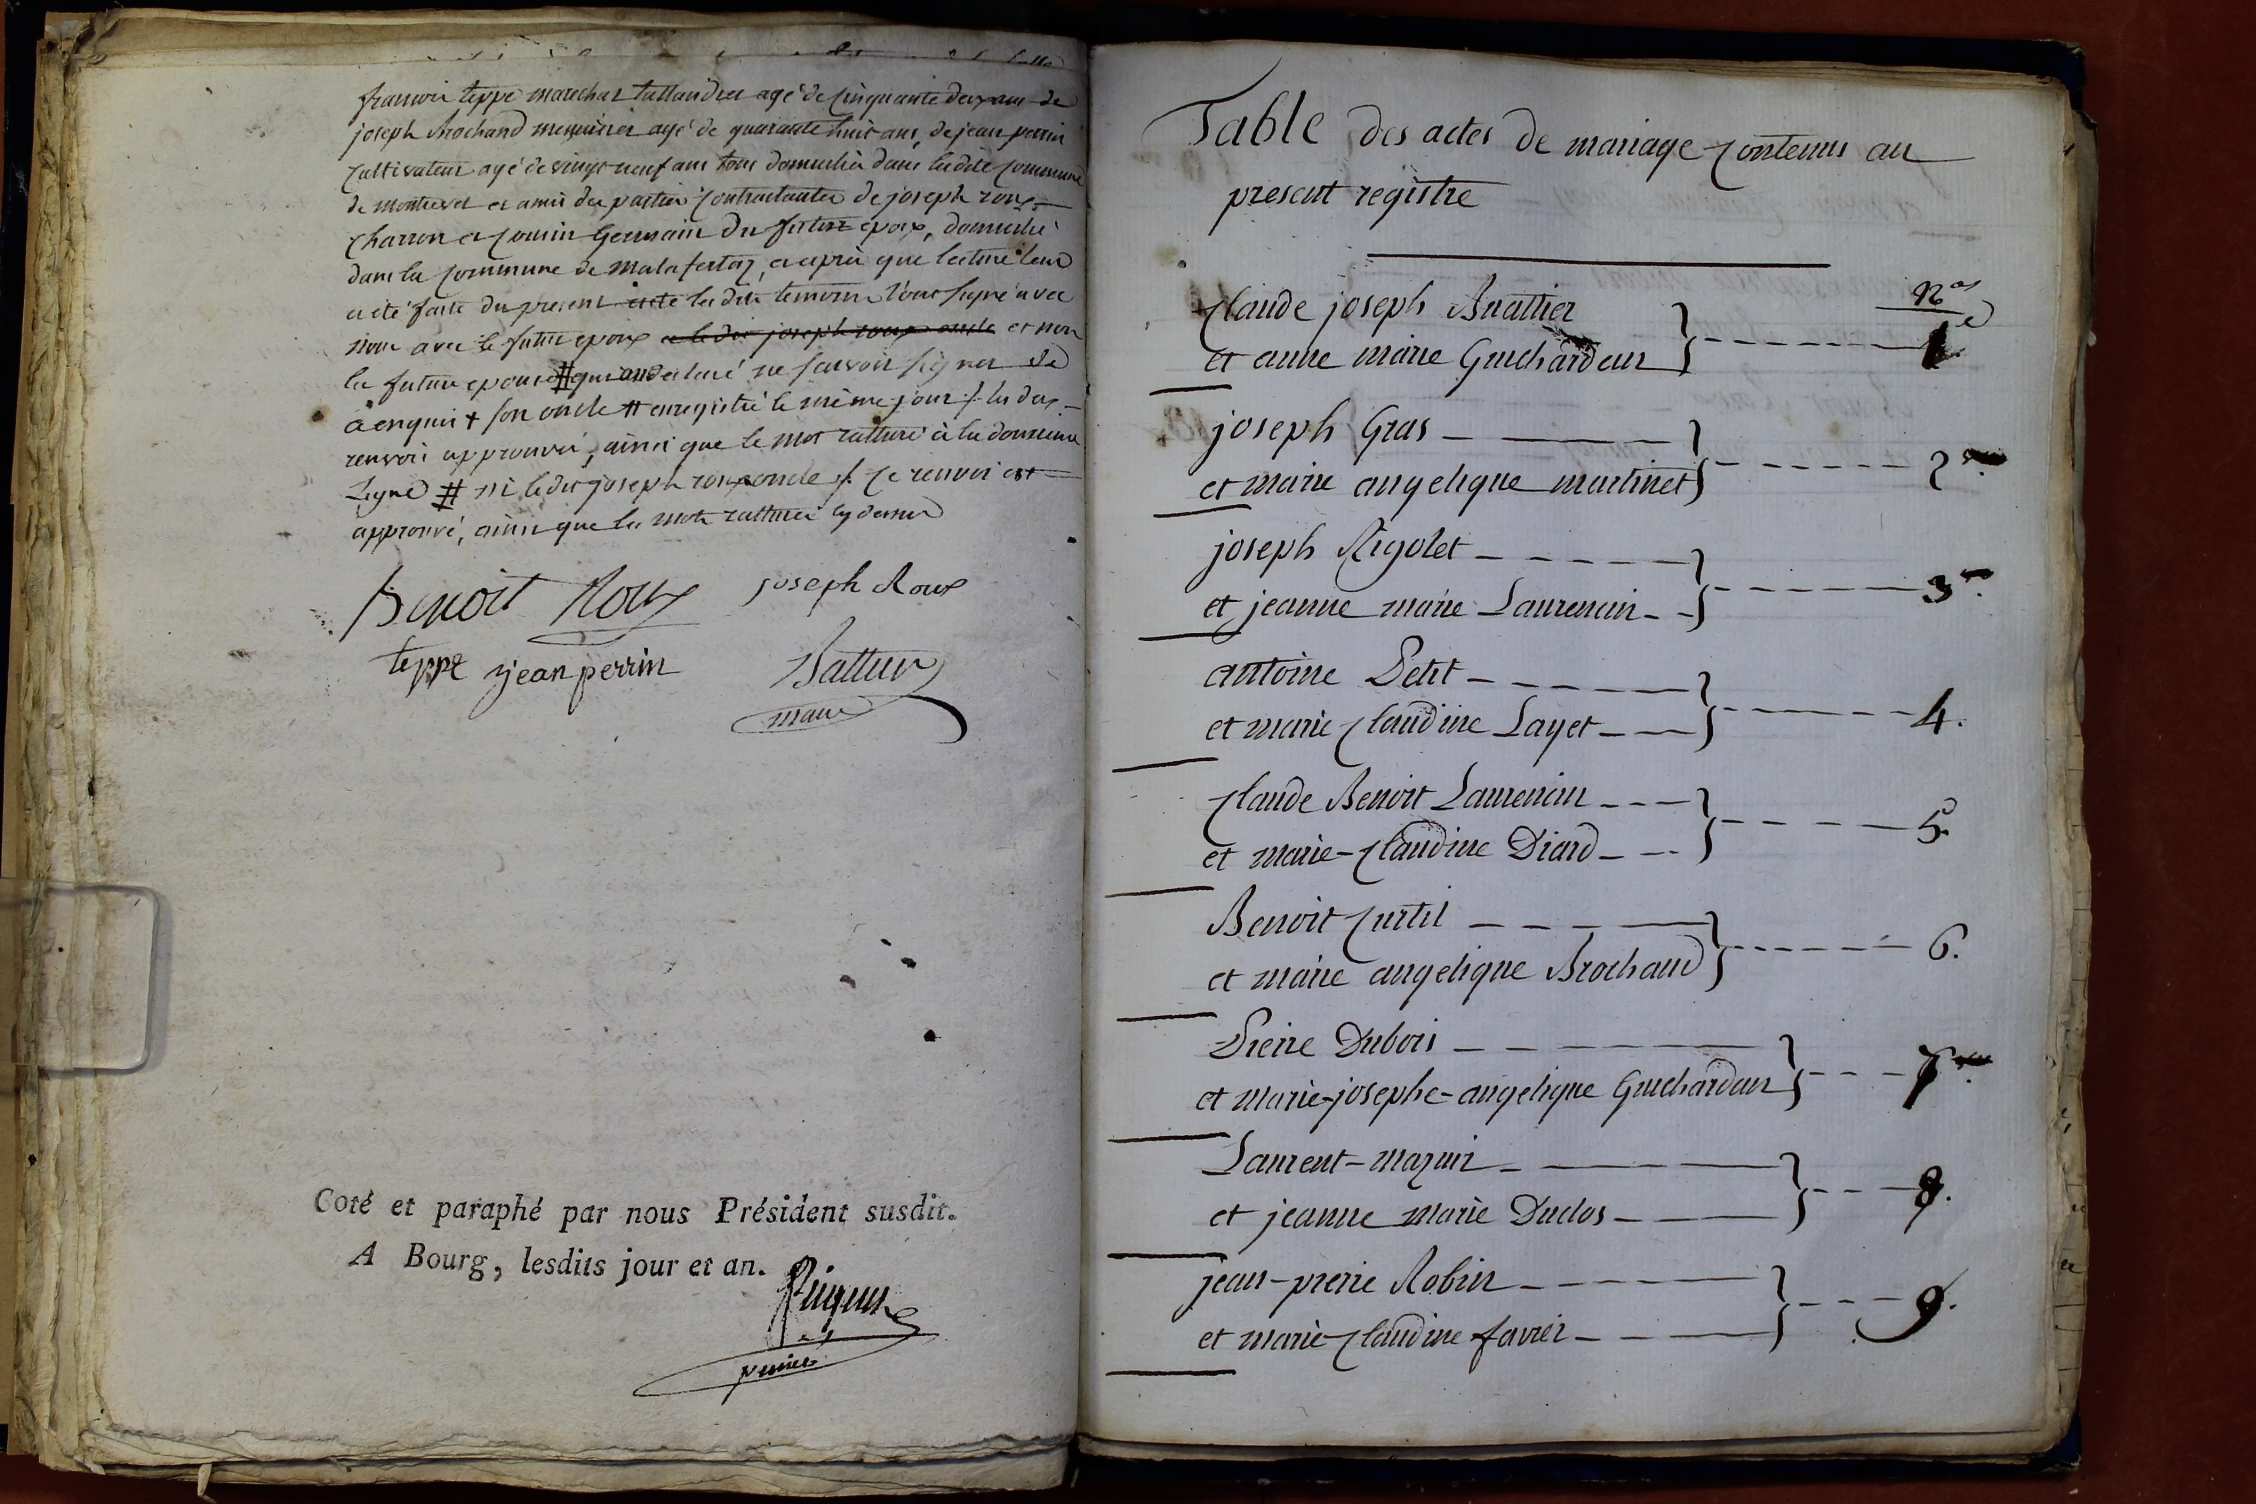 françois teppe marechal tallandier agé de cinquante deux ans de
joseph Brochand menuisier agé de quarante huit ans, de jean perrin
cultivateur agé de vingt neuf ans tous domiciliés dans ladite commune
de montrevel et amis des parties contractantes de joseph roux
charron et cousin Germain du futur epoux, domicilié
dans la commune de malafretaz, et après que lecture leur
a été faite du present acte les dits temoins l'ont signé avec
nous avec le futur epoux et le dit joseph roux oncle et non
la future epouse # qui ont declaré ne scavoir signer de
a enquis + son oncle # enregistré le même jour / les deux
renvois approuvés, ainsi que le mot ratturé à la douzieme
Ligne # ni ledit joseph roux oncle /. Ce renvoi est
approuvé, ainsi que les mots ratturés cy dessus
Benoit Roux joseph Roux
teppe jean perrin
maire
Coté et paraphé par nous Président susdit.
A Bourg, lesdits jour et an.
Table des actes de mariage contenus au
present registre
Nos
Claude joseph Brattier
et anne marie Guichardeur 1
joseph Gras
et marie angelique martinet 2
joseph Rigolet
et jeanne marie Laurencin 3
antoine Petit
et marie Claudine Layet 4.
Claude Benoit Laurencin
et marie-Claudine Diard 5
Benoit Curtil
et marie angelique Brochand 6.
Pierre Dubois
et marie-josephe-angelique Guichardeur 7
Laurent-mazuir
et jeanne marie Duclos 8.
jean-pierre Robin
et marie-Claudine favier 9.